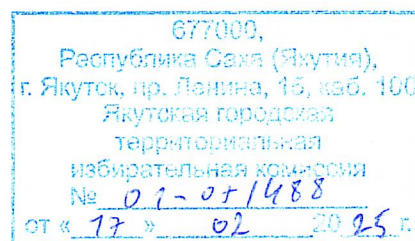 677000,
Республика Саха (Якутия),
г. Якутск, пр. Ленина, 15, каб. 100
Якутская городская
территориальная
избирательная комиссия
№ 01-07/1488
от « 17 » 02 20 25 г.